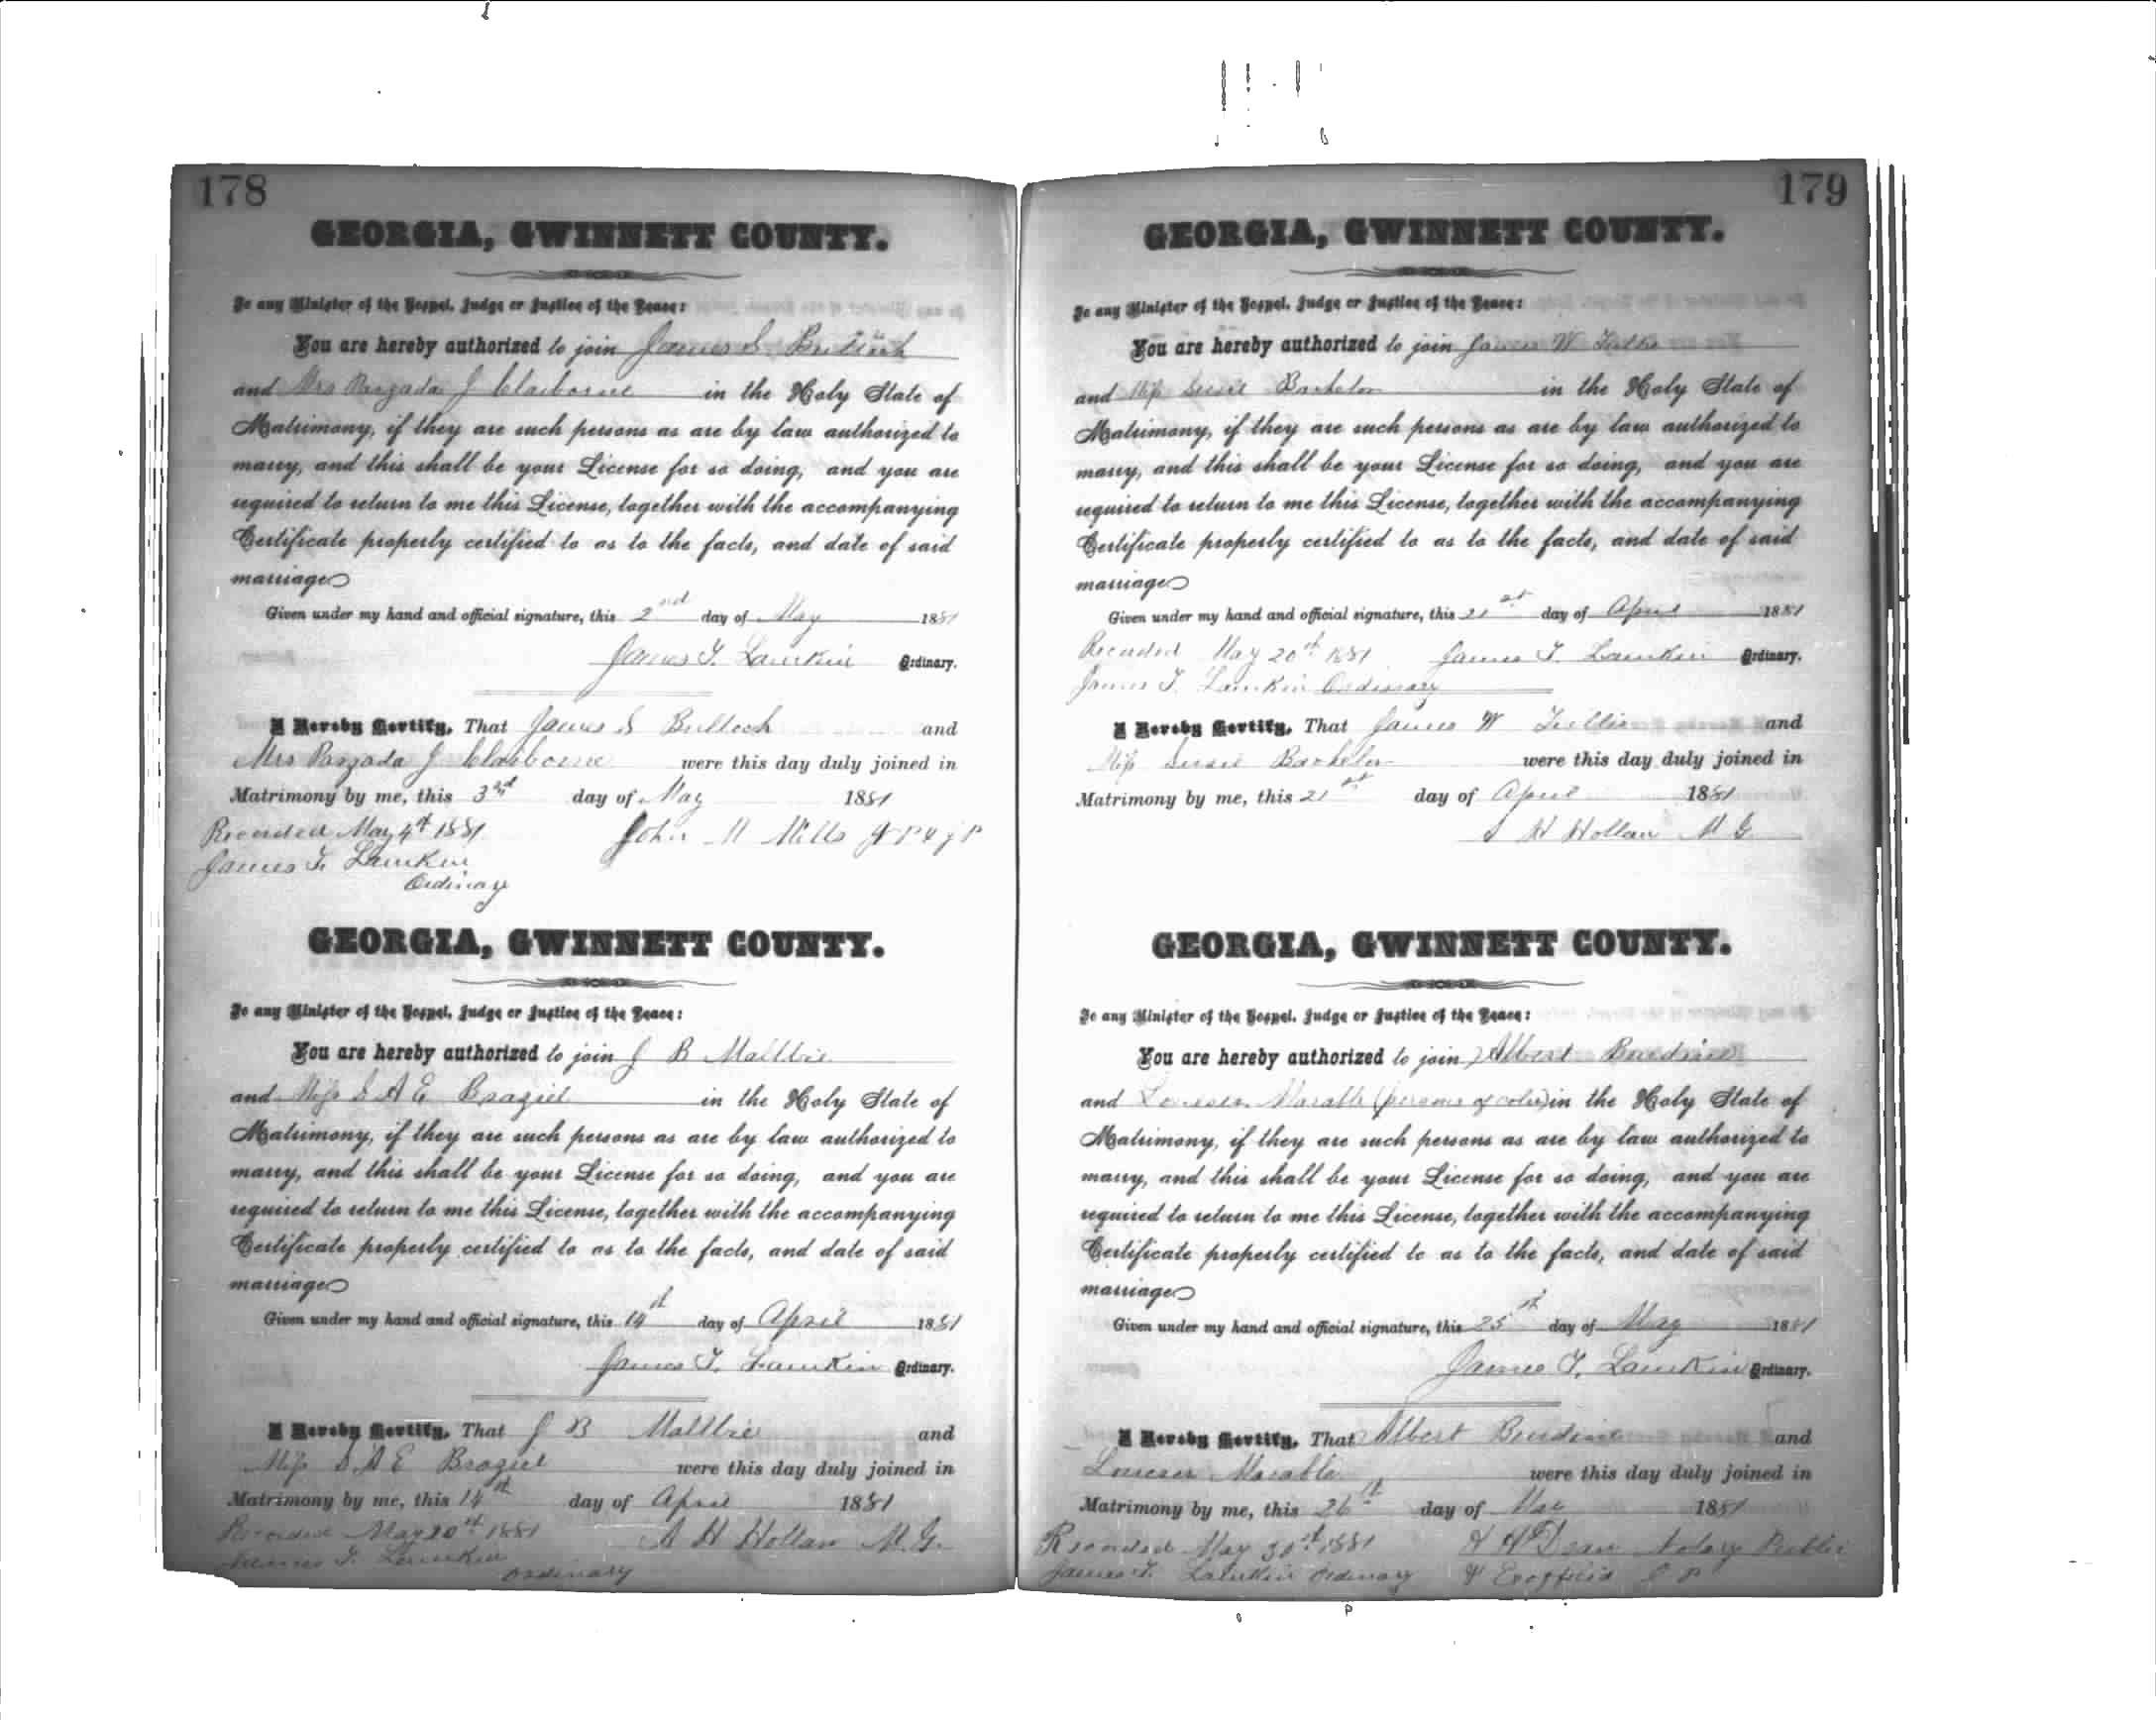 178
GEORGIA, GWINNETT COUNTY.
To any Minister of the Gospel, Judge or Justice of the Peace:
You are hereby authorized to join James S. Bulloch
and Mrs Pargada J Claiborne in the Holy State of
Matrimony, if they are such persons as are by law authorized to
marry, and this shall be your License for so doing, and you are
required to return to me this License, together with the accompanying
Certificate properly certified to as to the facts, and date of said
marriage
Given under my hand and official signature, this 2nd day of May 1881
James T. Lamkin Ordinary.
I Hereby Certify, That James S Bulloch and
Mrs Pargada J Claiborne were this day duly joined in
Matrimony by me, this 3rd day of May 1881
Recorded May 4th 1881 John M Mills
James T. Lamkin
Ordinary
GEORGIA, GWINNETT COUNTY.
To any Minister of the Gospel, Judge or Justice of the Peace:
You are hereby authorized to join J B Maltbie
and Miss S A E Braziel in the Holy State of
Matrimony, if they are such persons as are by law authorized to
marry, and this shall be your License for so doing, and you are
required to return to me this License, together with the accompanying
Certificate properly certified to as to the facts, and date of said
marriage
Given under my hand and official signature, this 14th day of April 1881
James T. Lamkin Ordinary.
I Hereby Certify, That J B Maltbie and
Miss S A E Braziel were this day duly joined in
Matrimony by me, this 14th day of April 1881
Recorded May 20th 1881 A H Hollan M.G.
James T. Lamkin
Ordinary
179
GEORGIA, GWINNETT COUNTY.
To any Minister of the Gospel, Judge or Justice of the Peace:
You are hereby authorized to join James W Tullis
and Miss Susie Bachelor in the Holy State of
Matrimony, if they are such persons as are by law authorized to
marry, and this shall be your License for so doing, and you are
required to return to me this License, together with the accompanying
Certificate properly certified to as to the facts, and date of said
marriage
Given under my hand and official signature, this 21st day of April 1881
Recorded May 20th 1881 James T. Lamkin Ordinary.
James T. Lamkin Ordinary
I Hereby Certify, That James W Tullis and
Miss Susie Bachelor were this day duly joined in
Matrimony by me, this 21st day of April 1881
H Hollan M G
GEORGIA, GWINNETT COUNTY.
To any Minister of the Gospel, Judge or Justice of the Peace:
You are hereby authorized to join Albert Burdine
and Louesa Marable (persons of color) in the Holy State of
Matrimony, if they are such persons as are by law authorized to
marry, and this shall be your License for so doing, and you are
required to return to me this License, together with the accompanying
Certificate properly certified to as to the facts, and date of said
marriage
Given under my hand and official signature, this 25th day of May 1881
James T. Lamkin Ordinary.
I Hereby Certify, That Albert Burdine and
Louesa Marable were this day duly joined in
Matrimony by me, this 26th day of May 1881
Recorded May 30th 1881 H A Dean Notary Public
James T. Lamkin Ordinary & Exofficio J P